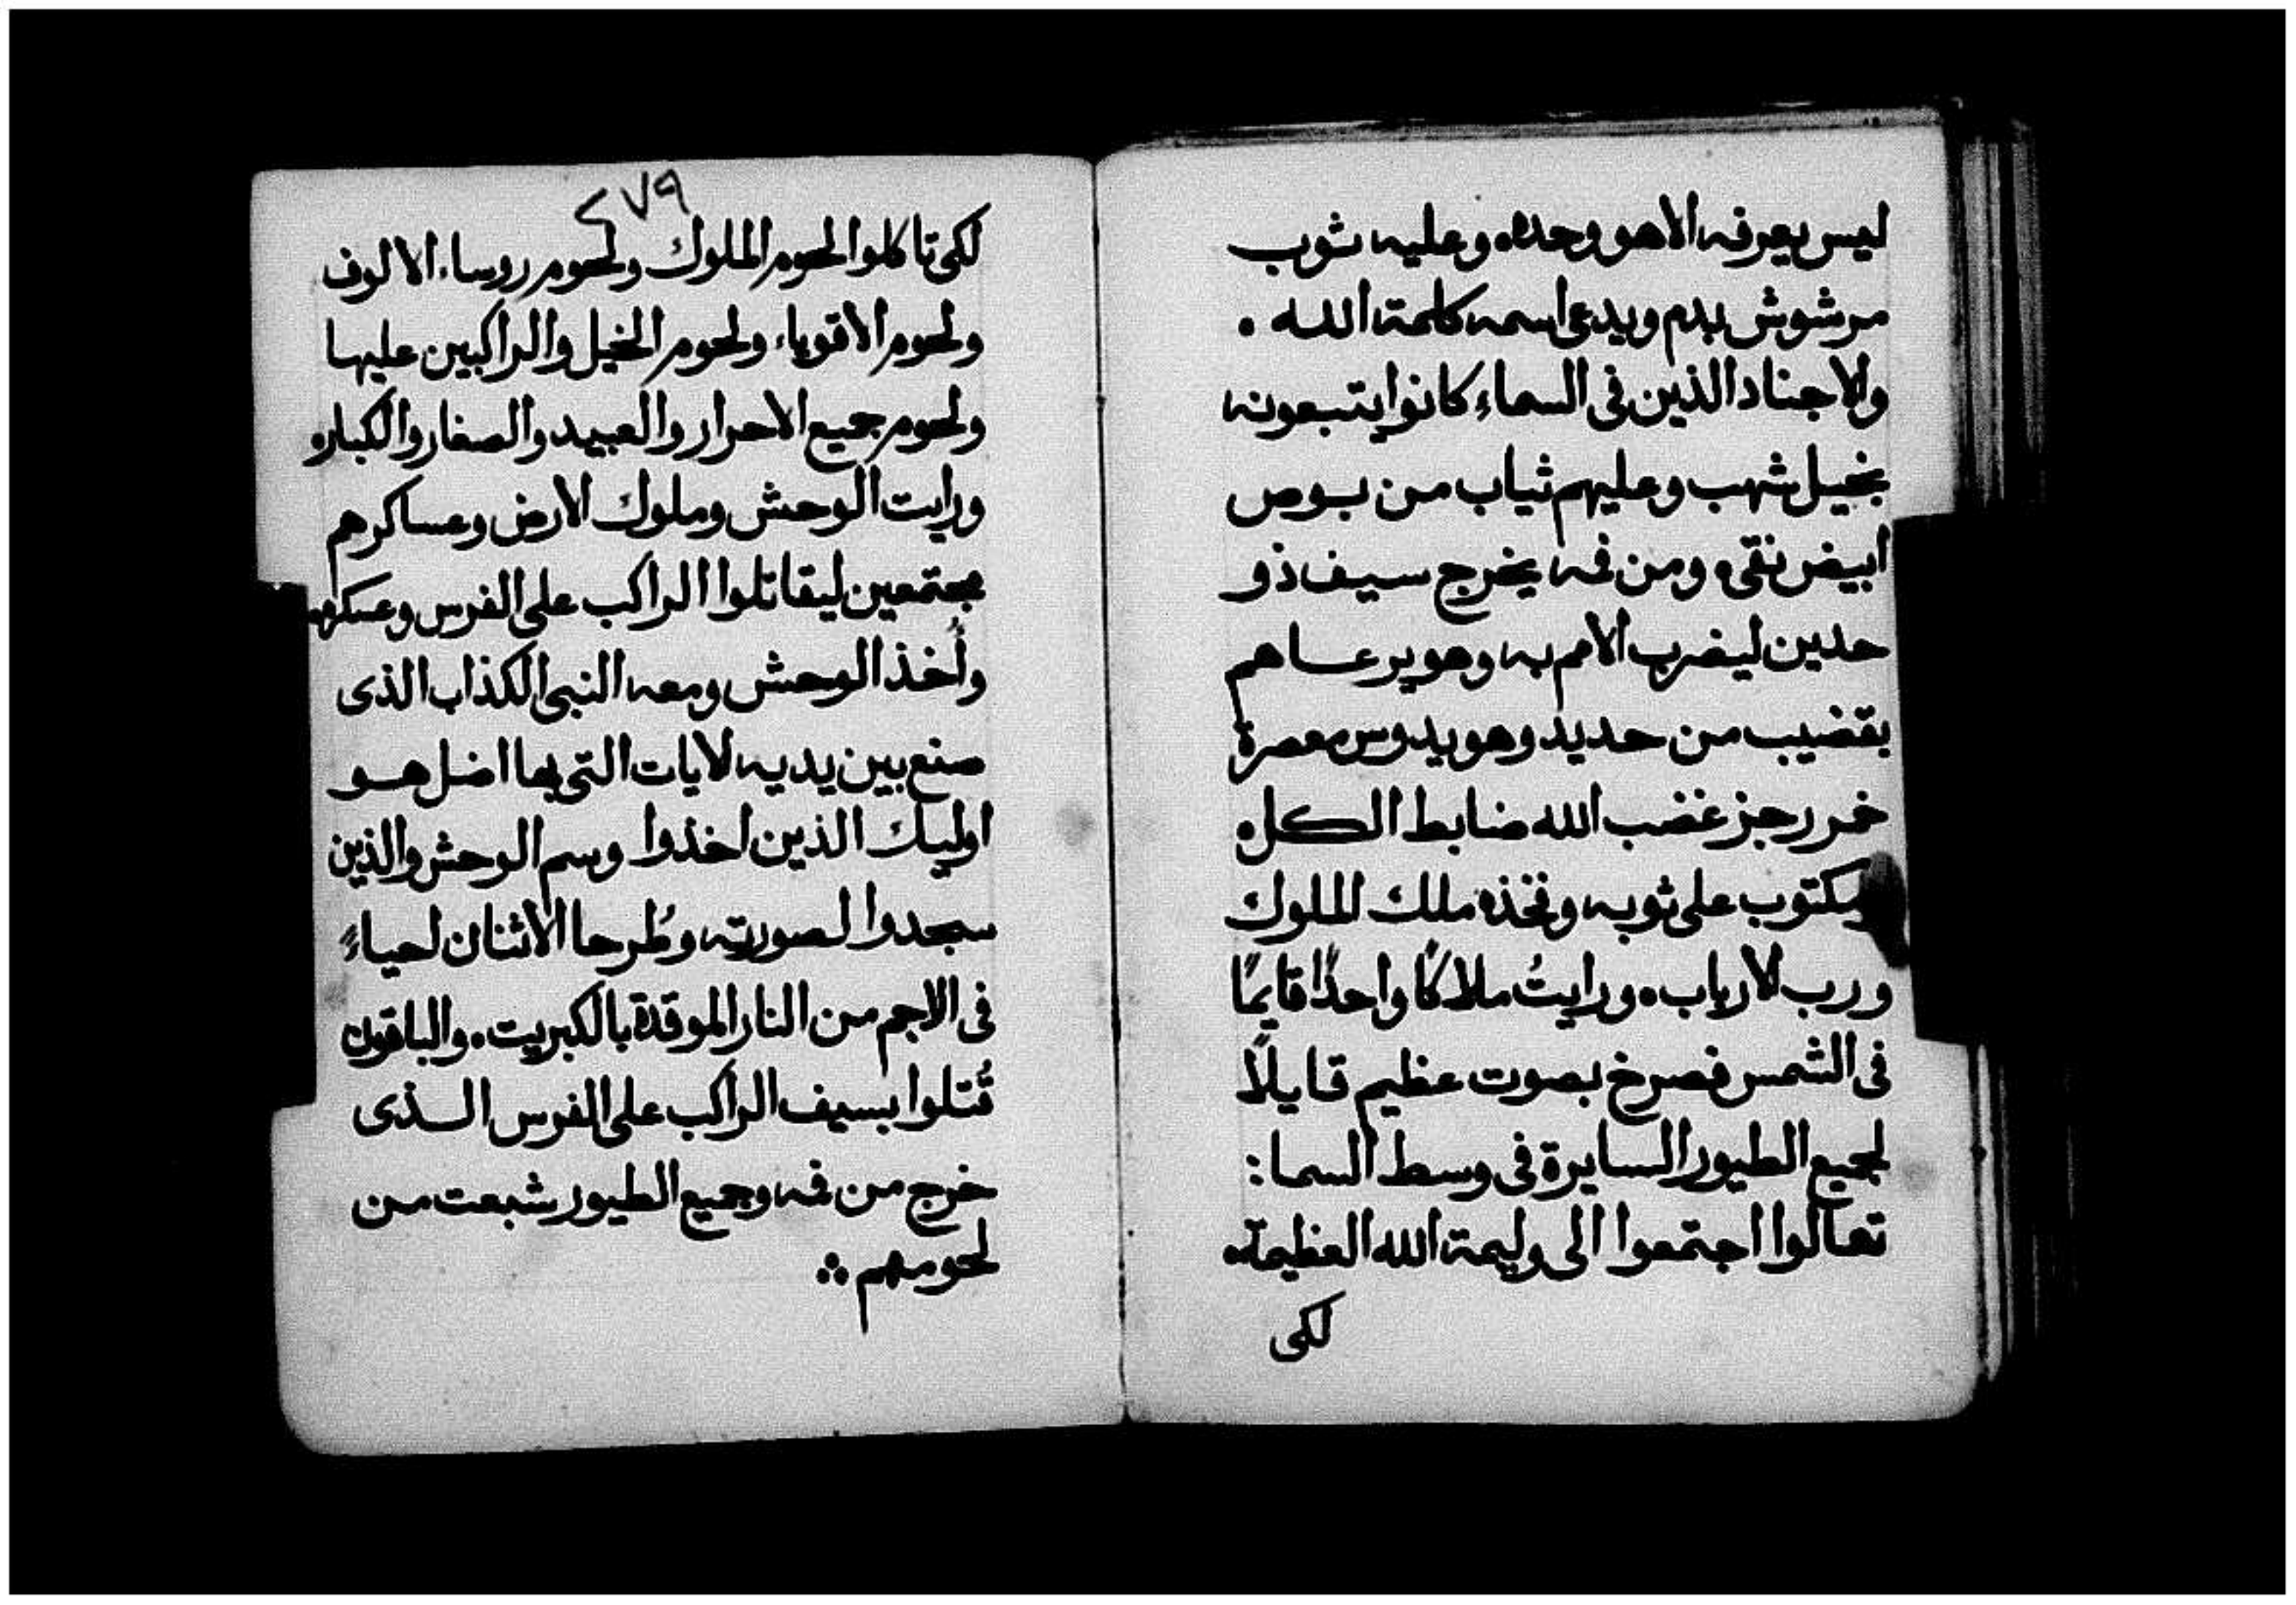 ليس يعرفه الا هو وحده وعليه ثوب
مرشوش بدم ويدعى اسمه كلمة الله ۰
والاجناد الذين فى السماء كانوا يتبعونه
بخيل شهب وعليهم ثياب من بوص
ابيض نقى ۰ ومن فمه يخرج سيف ذو
حدين ليضرب الامم به وهو يرعاهم
بقضيب من حديد وهو يدوس معصرة
خمر رجز غضب الله ضابط الكل ۰
ومكتوب على ثوبه وفخذه ملك الملوك
ورب لارباب ۰ ورايتُ ملاكًا واحدًا قايمًا
فى الشمس فصرخ بصوت عظيم قايلاً
لجميع الطيور السايرة فى وسط السما :
تعالوا اجتمعوا الى وليمة الله العظيمة ۰
لكى
٢٧٩
لكى تاكلوا لحوم الملوك ولحوم روساء الالوف
ولحوم الاقوياء ولحوم الخيل والراكبين عليها
ولحوم جميع الاحرار والعبيد والصغار والكبار ۰
ورايت الوحش وملوك الارض وعساكرهم
مجتمعين ليقاتلوا الراكب على الفرس وعسكره
وأُخذ الوحش ومعه النبى الكذاب الذى
صنع بين يديه لايات التى بها اضل هو
اوليك الذين اخذوا وسم الوحش والذين
سجدوا لصورته وطُرحا الاثنان احياءً
فى الاجم من النار الموقدة بالكبريت ۰ والباقون
قُتلوا بسيف الراكب على الفرس الذى
خرج من فمه وجميع الطيور شبعت من
لحومهم ۞